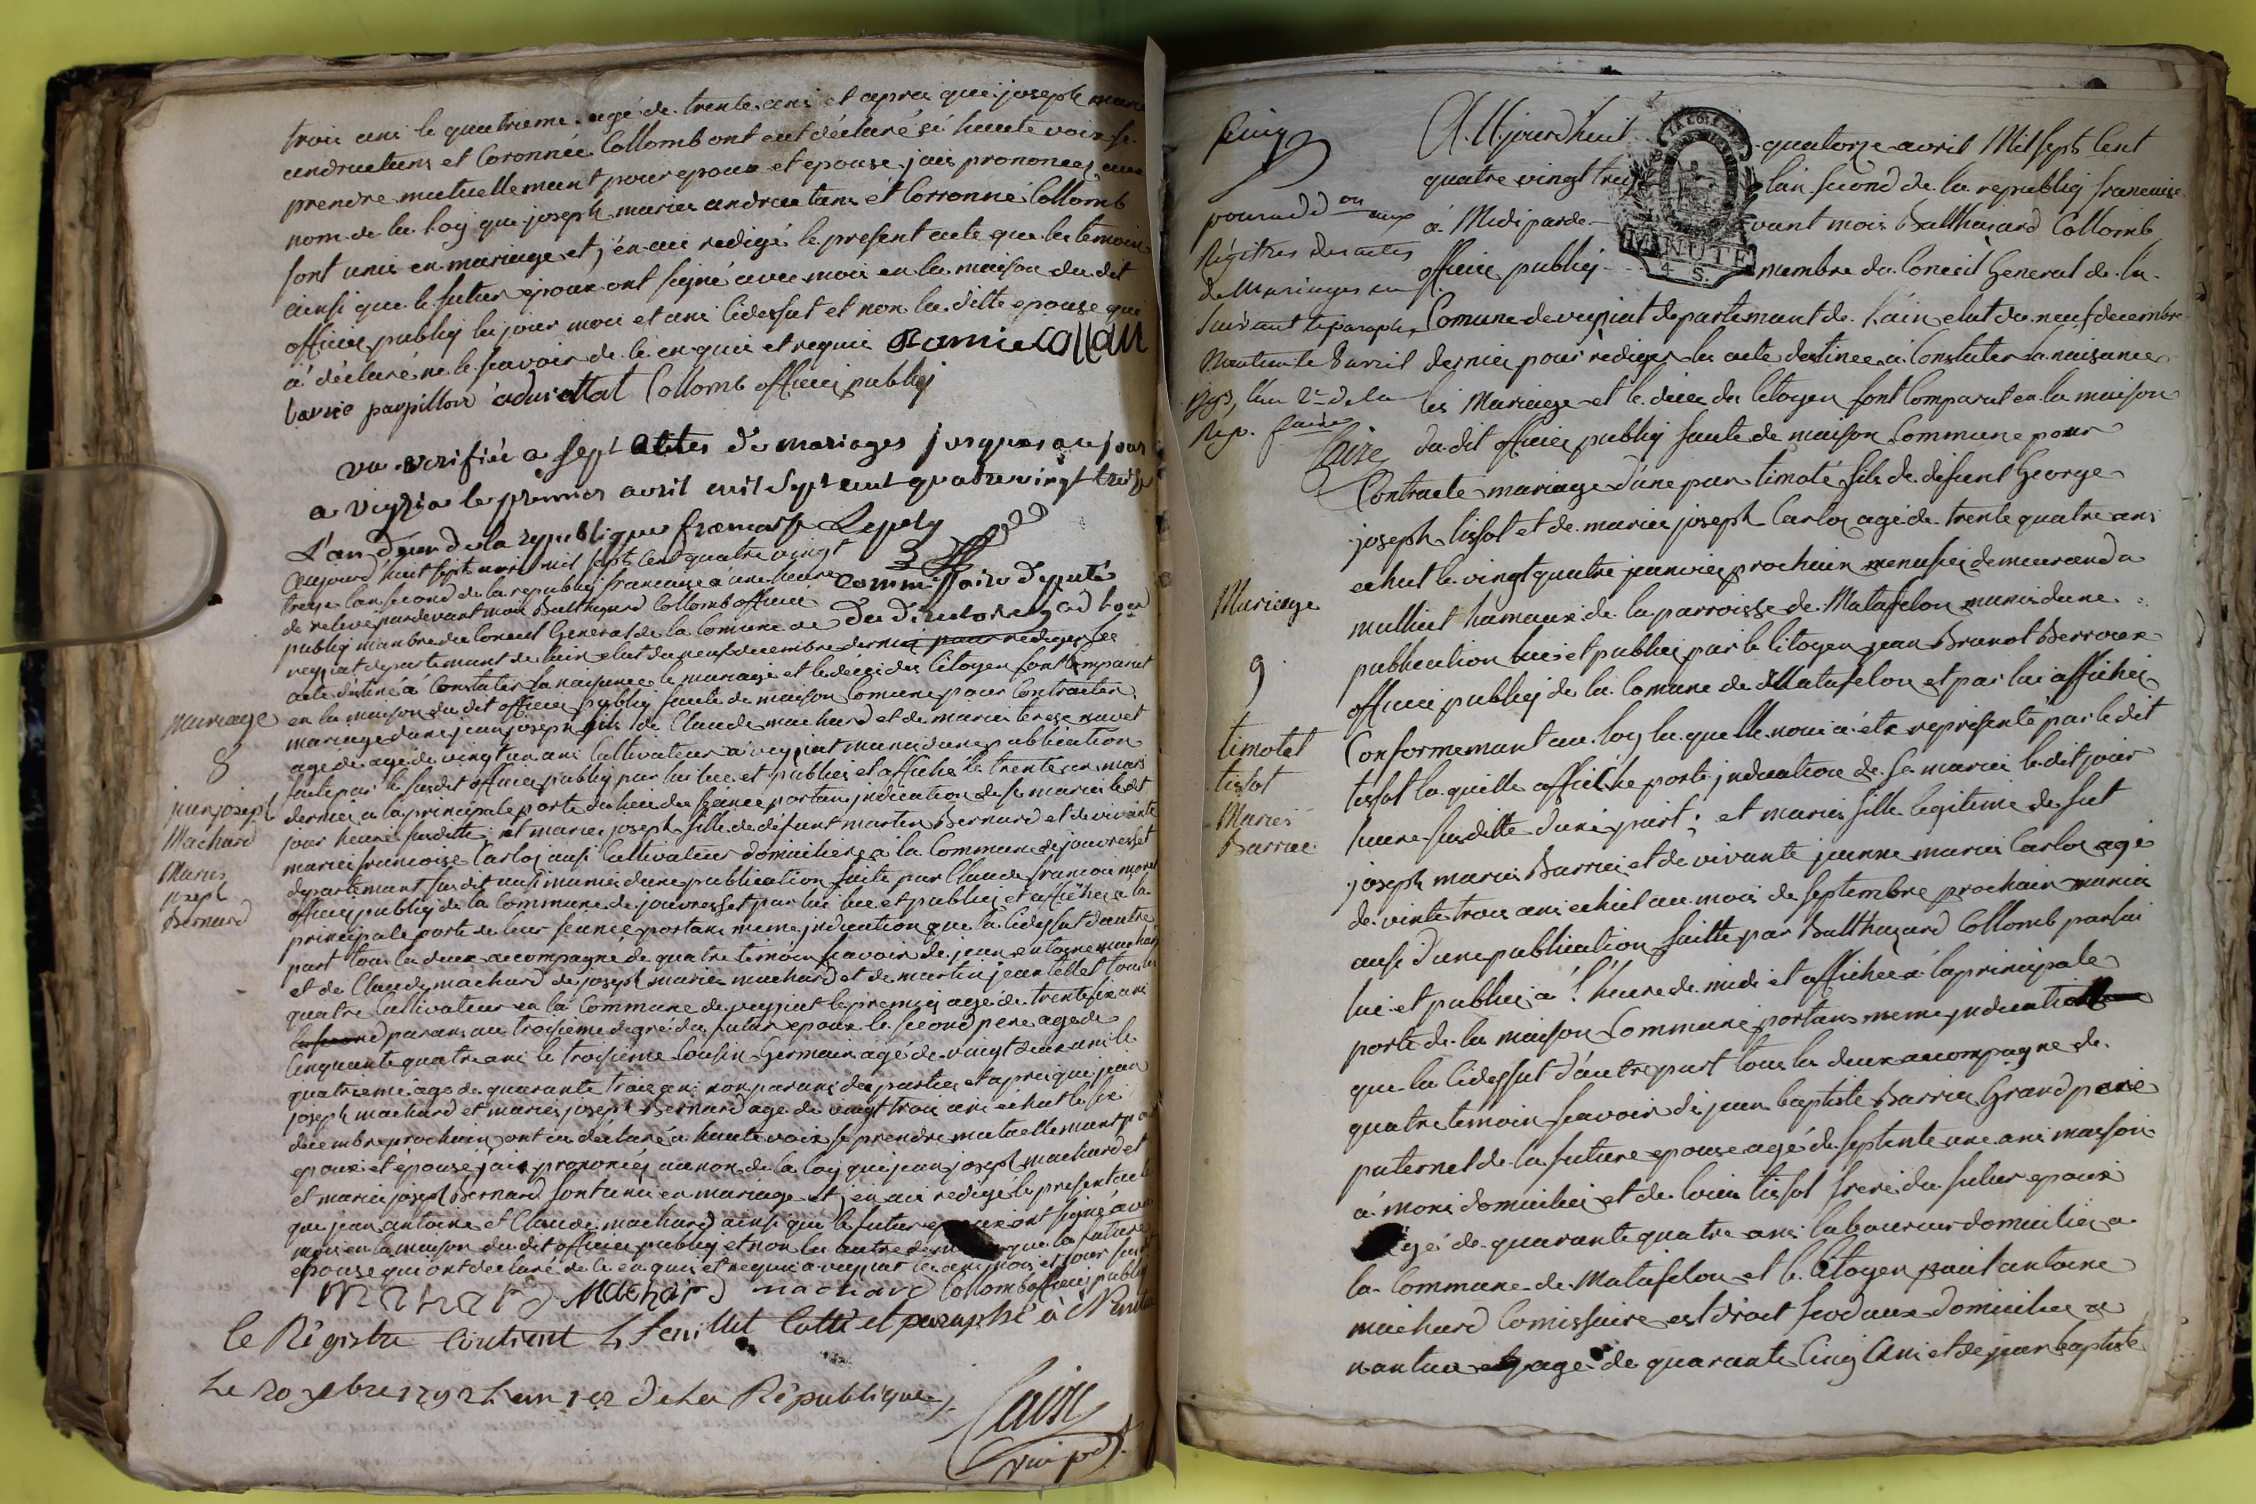 trois ans le quatrieme agé de trente ans et apres que joseph marie
andruetans et Coronnée Collomb ont eut déclaré a haute voix se
prendre mutuellement pour epoux et epouse jais prononcez au
nom de la loy que joseph marie andruetans et Corronné Collomb
sont unis en mariage et j'en ai redigé le present acte que les temoins
ainsi que le futur epoux ont signé avec moi en la maison du dit
officier publiq les jour mois et ans cidessut et non la ditte epouse qui
a déclaré ne le scavoir de ce enquis et requis
papillon Collomb officier publiq
vu verifiée a sept actes de mariages jusques au jour
a Veyzia le premier avril mil sept cent quatre vingt treize
L'an deux de la republique francaise
commissaire deputé
du directoire
aujourd'huit sept avril mil sept cent quatre vingt
treize lan second de la republiq francaise a une heure
de releve pardevant moi Balthazard Collomb officier
publiq manbre du Conseil General de la Comune de
veyziat departemant de lain elut du neuf decembre dernier pour rediger les
acte destiné a Constater la naisance le mariage et le décès des Citoyen sont comparut
en la maison du dit officier publiq faute de maison Comune pour Contracter
mariage d'une jean joseph fils de Claude machard et de marie terese navet
age de agé de vingt un ans Cultivateur a veyziat muni d'une publication
faite par le susdit officier publiq par lui lue et publier et affiché le trente un mars
dernier a la principale porte du lieu des seance portans indication de se marier le dit
jour heure susditte et marie joseph fille de défunt martin Bernard et de vivante
marie francoise Carloz ausi Cultivateur domicilierz a la Commune de jouvresset
departemant susdit ausi munie d'une publication faite par Claude francois morel
officier publiq de la Commune de jouvresset par lui lue et publiez et affichez a la
principale porte de leur seance portans meme indication que la cidessut d'autre
part tous les deux accompagné de quatre temoin scavoir de jean antoine machard
et de Claude machard de joseph marie machard et de martin jeantellet tous les
quatre Cultivateur en la Commune de veyziat le premier agé de trente six ans
le second parans au troisieme degré du futur epoux le second pere agé de
Cinquante quatre ans le troisieme Cousin Germain agé de vingt deux ans le
quatrieme age de quarante trois ans non parans des parties et apres que jean
joseph machard et marie joseph Bernard age de vingt trois ans echut le six
decembre prochain ont eu déclaré a haute voix se prendre mutuellemant pour
epoux et épouse jais prononcez au nom de la loy que jean joseph machard et
et marie joseph Bernard sont unis en mariage et j'en ai redigé le present acte
que jean antoine et Claude machard ainsi que le futur epoux ont signé avec
moi en la maison du dit officier publiq et non les autre que la future
epouse qui ont declaré de ce enquis et requis a veyziat les ans mois et jour susdit
Machard Machard Collomb officier publiq
mariage
8
jean joseph
Machard
Marie
joseph
Bernard
le Régistre contient feuillet Cotté et paraphé à Nantua
Le 20 xbre 1792 L'an 1er de La République
vice pdt
pour addon aux
Régistres des actes
de Mariages
Suivant le paraphe
Nantua le avril
1793, l'an 2e de la
Rép.
Mariage
9
timotet
tissot
Marie
Barrie
LA LOI
MINUTE
4 S.
Aujourdhuit quatorze avril Mil sept Cent
quatre vingt treize lan second de la republiq francaise
a Midi parde vant mois Balthazard Collomb
officier publiq membre du Conseil General de la
Comune de veyziat departemant de l'ain elut du neuf decembre
dernier pour rediger les acte destinee a Constater la naisance
les Mariage et le décès des Citoyen sont Comparut en la maison
du dit officier publiq faute de maison Commune pour
Contracte mariage d'une part timoté fils de défunt George
joseph tissot et de marie joseph Carloz agé de trente quatre ans
echut le vingt quatre janvier prochain menusier demeurand a
mulliet hamaux de la parroisse de Matafelon munis d'une
publication lue et publiez par le Citoyen jean Brunot Berroux
officier publiq de la Comune de Matafelon et par lui affichez
Conformemant au loy laquelle nous a été representé par le dit
tissot laquelle affiche porte indication de se marier le dit jour
heure susditte d'une part ; et marie fille legitime de fut
joseph marie Barrier et de vivante jeanne marie Carloz agé
de vinte trois ans echut au mois de septembre prochain munie
ausi d'une publication faitte par Balthazard Collomb par lui
lue et publiez a l'heure de midi et affichez a la principale
porte de la maison Commune portans meme indication
que la cidessut d'autre part tous les deux accompagné de
quatre temoin scavoir de jean baptiste Barrier Grand pere
paternel de la future epouse agé de septente une ans masson
a mons domicilier et de louis tissot frere du futur epoux
agé de quarante quatre ans laboureur domicilier a
la Commune de Matafelon et le Citoyen paul antoine
machard Comissaire est droit feodaux domicilier a
nantua agé de quarante Cinq Ans et de jean baptiste